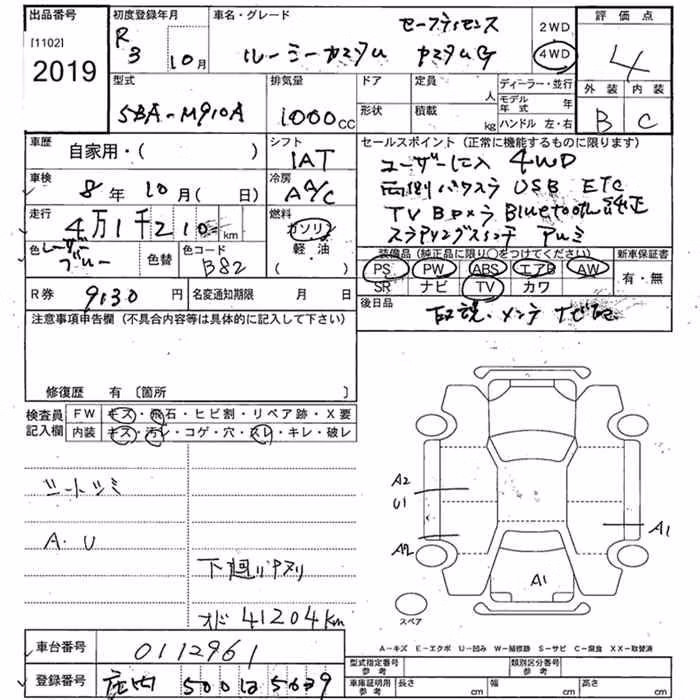 出品番号 初度登録年月 車名・グレード 評価点
[1102] R 3 10月 セーフティセンス 2WD
2019 ルーミーカスタム カスタムG 4WD 4
型式 排気量 ドア 定員 人 ディーラー・並行 外装 内装
5BA-M910A 1000cc 形状 積載 kg モデル年式 年 B C
ハンドル 左・右
車歴 自家用・( ) シフト IAT セールスポイント (正常に機能するものに限ります)
車検 8年10月( 日) 冷房 A/C ユーザー仕入 4WD
両側パワスラ USB ETC
走行 4万1千210 km 燃料 ガソリン TV Bカメラ Bluetooth 純正
色 レーザーブルー 色替 色コード B82 軽油 ( ) ステアリングスイッチ アルミ
装備品 (純正品に限り○をつけてください) 新車保証書
PS PW ABS エアB AW 有・無
R券 9130円 名変通知期限 月 日 SR ナビ TV カワ
注意事項申告欄 (不具合内容等は具体的に記入して下さい) 後日品
取説、メンテ ナビ
修復歴 有 〔箇所 〕
検査員 FW キズ・飛石・ヒビ割・リペア跡・X要
記入欄 内装 キズ・汚レ・コゲ・穴・スレ・キレ・破レ
シートシミ A2
U1
A・U A2 A1
下廻リサビ A1
オド 41204Km スペア
A-キズ E-エクボ U-凹み W-補修跡 S-サビ C-腐食 XX-取替済
車台番号 0112961 型式指定番号 参考 類別区分番号 参考
登録番号 500 車庫証明用 参考 長さ cm 幅 cm 高さ cm